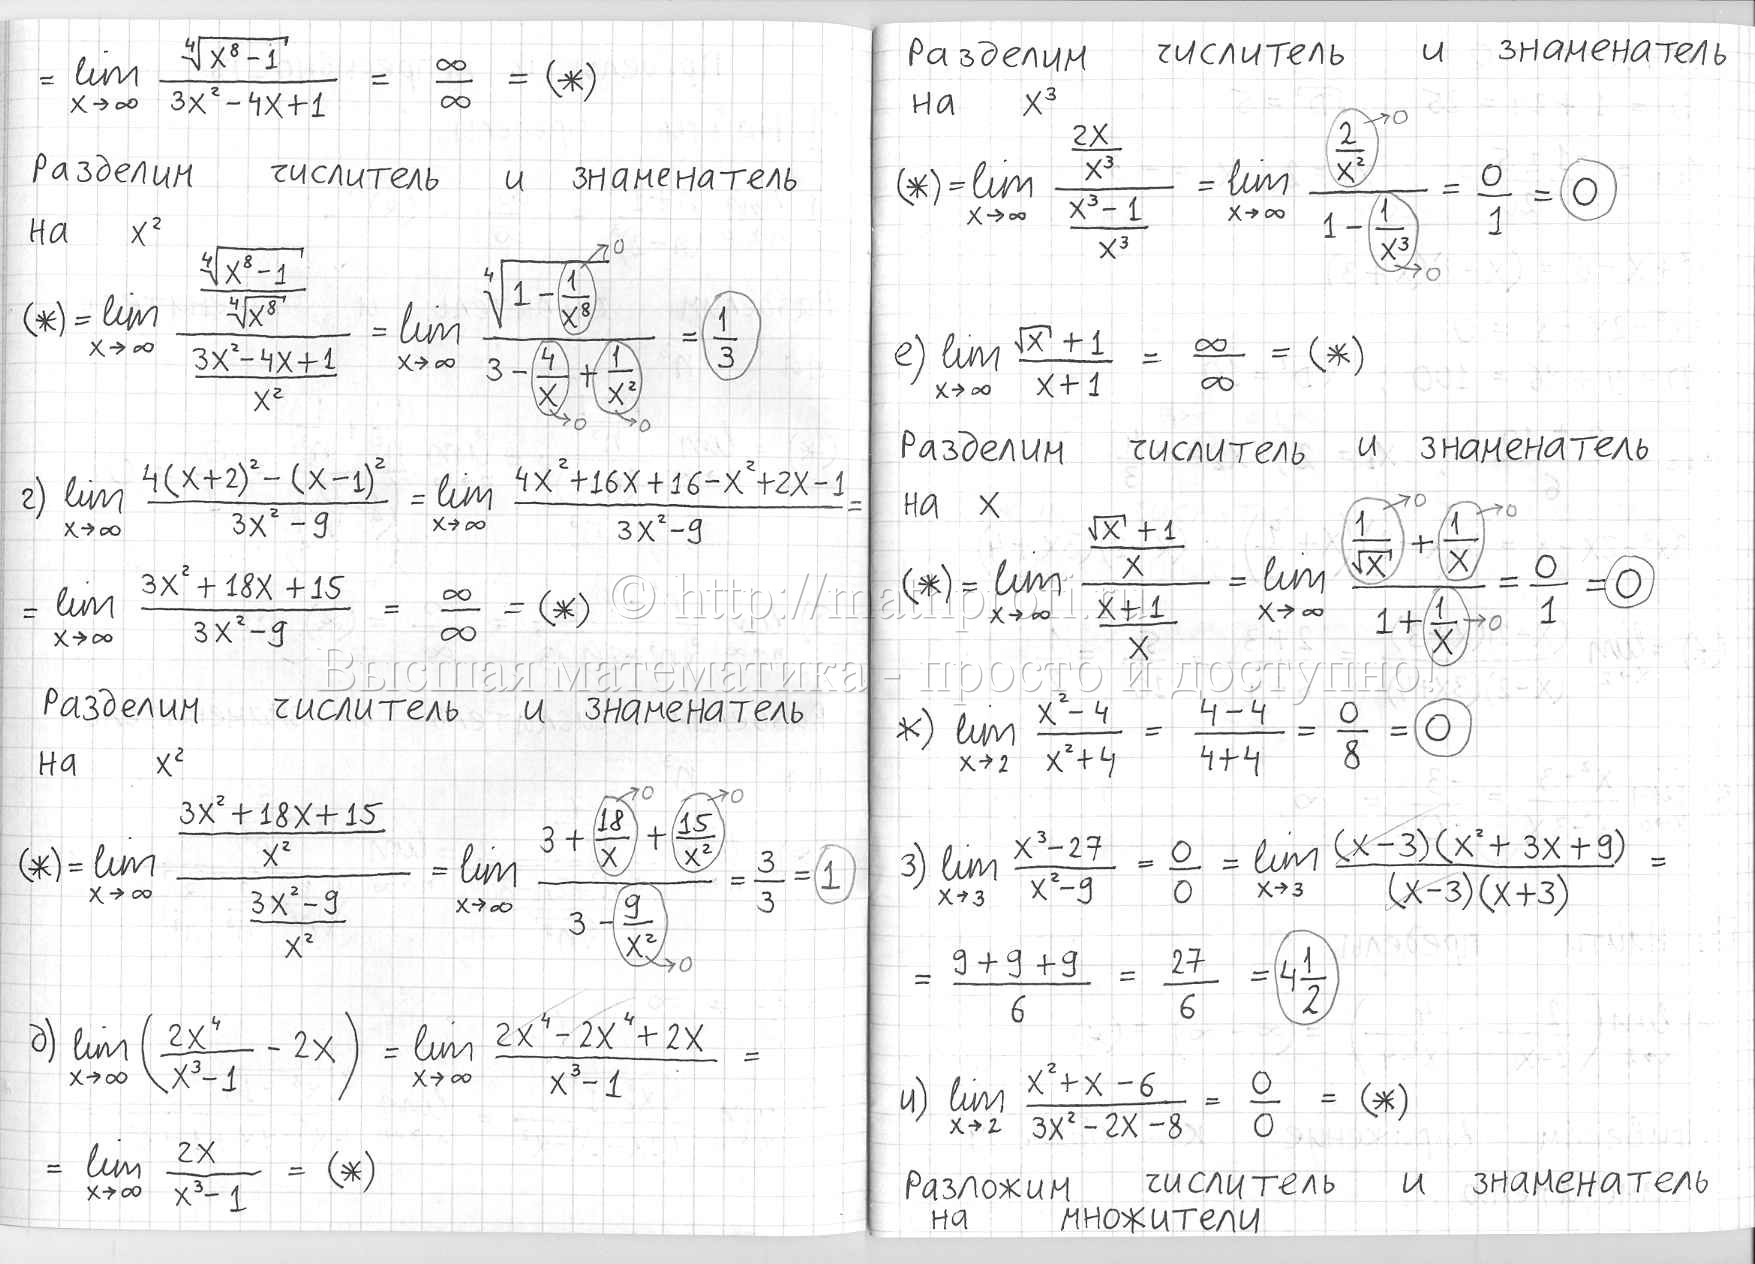 = lim x→∞ ∜(x⁸-1) / (3x²-4x+1) = ∞/∞ = (*)
Разделим числитель и знаменатель
на x²
(*) = lim x→∞ (∜(x⁸-1) / ∜(x⁸)) / ((3x²-4x+1) / x²) = lim x→∞ ∜(1 - 1/x⁸ →0) / (3 - 4/x →0 + 1/x² →0) = 1/3
г) lim x→∞ (4(x+2)² - (x-1)²) / (3x²-9) = lim x→∞ (4x²+16x+16-x²+2x-1) / (3x²-9) =
= lim x→∞ (3x²+18x+15) / (3x²-9) = ∞/∞ = (*)
Разделим числитель и знаменатель
на x²
(*) = lim x→∞ ((3x²+18x+15) / x²) / ((3x²-9) / x²) = lim x→∞ (3 + 18/x →0 + 15/x² →0) / (3 - 9/x² →0) = 3/3 = 1
д) lim x→∞ (2x⁴/(x³-1) - 2x) = lim x→∞ (2x⁴-2x⁴+2x) / (x³-1) =
= lim x→∞ 2x / (x³-1) = (*)
Разделим числитель и знаменатель
на x³
(*) = lim x→∞ (2x/x³) / ((x³-1)/x³) = lim x→∞ (2/x² →0) / (1 - 1/x³ →0) = 0/1 = 0
е) lim x→∞ (√x+1) / (x+1) = ∞/∞ = (*)
Разделим числитель и знаменатель
на x
(*) = lim x→∞ ((√x+1)/x) / ((x+1)/x) = lim x→∞ (1/√x →0 + 1/x →0) / (1 + 1/x →0) = 0/1 = 0
ж) lim x→2 (x²-4) / (x²+4) = (4-4) / (4+4) = 0/8 = 0
з) lim x→3 (x³-27) / (x²-9) = 0/0 = lim x→3 (x-3)(x²+3x+9) / (x-3)(x+3) =
= (9+9+9) / 6 = 27/6 = 4 1/2
и) lim x→2 (x²+x-6) / (3x²-2x-8) = 0/0 = (*)
Разложим числитель и знаменатель
на множители
Высшая математика - просто и доступно!